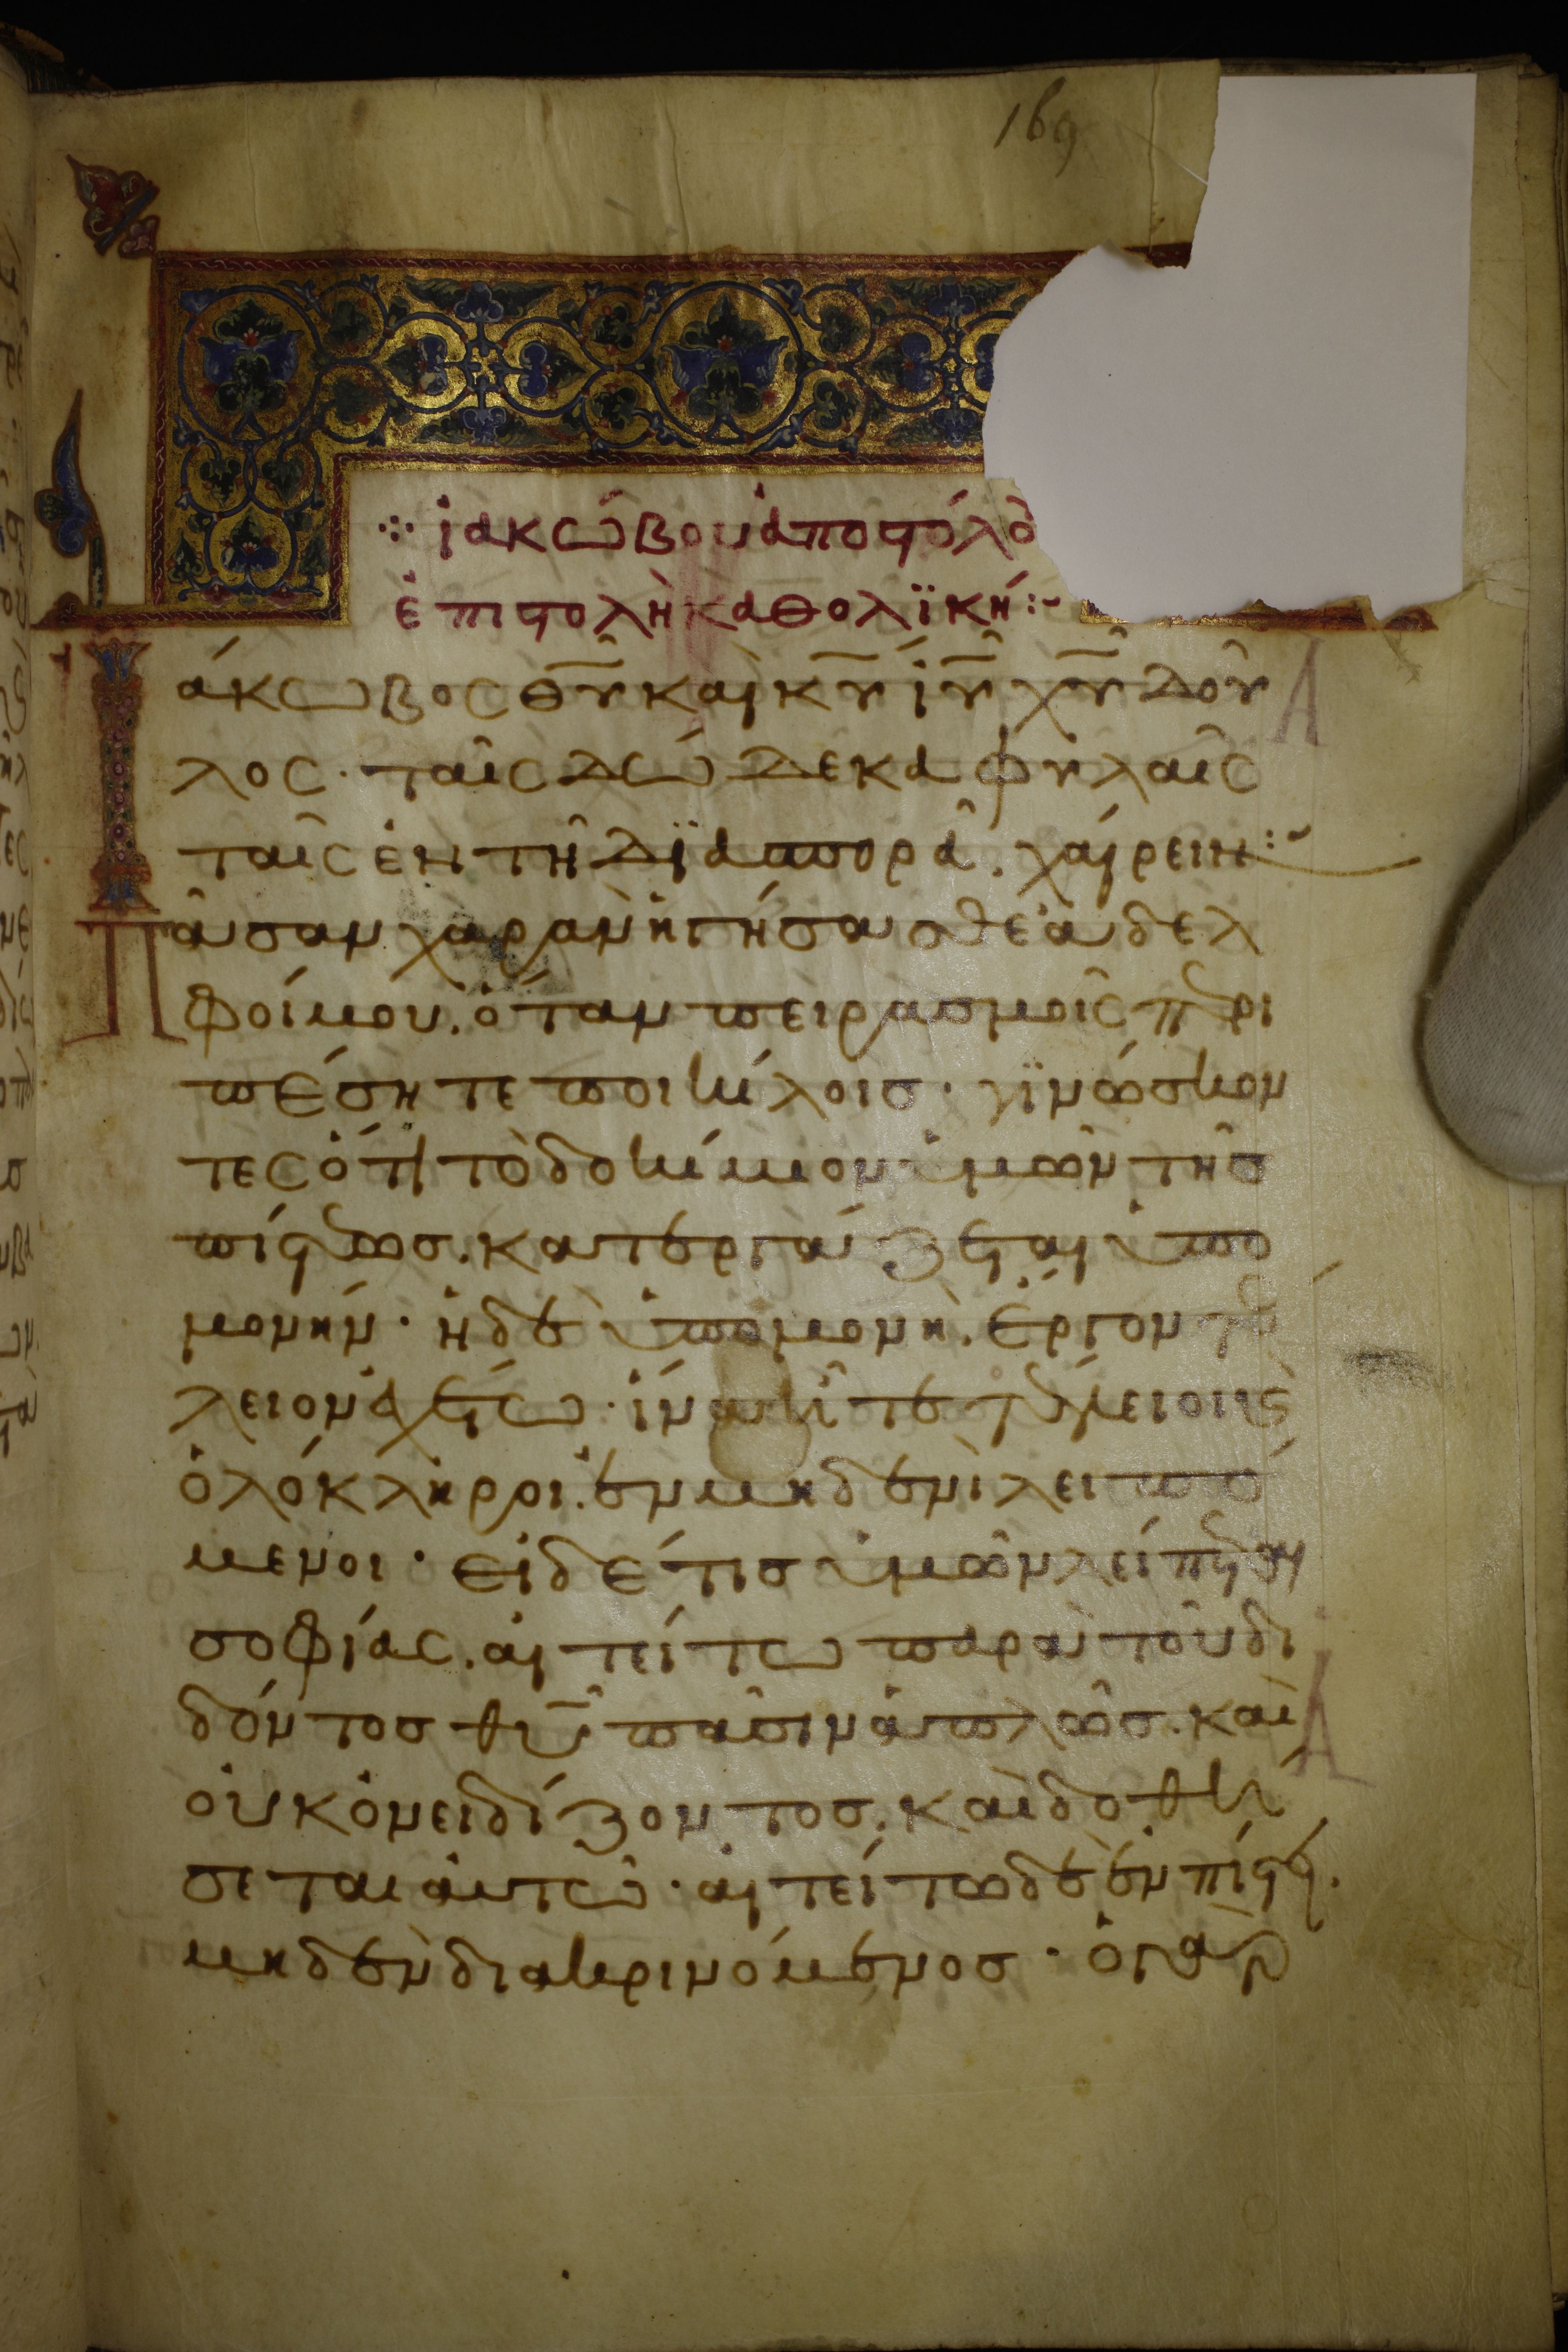 169
ἰακώβου ἀποστόλο
ἐπιστολὴ καθολϊκή:~
Ἰάκωβος θῦ καὶ κῦ ἰῦ χῦ δοῦ
λος· ταῖς δώδεκα φυλαῖς
ταῖς ἐν τῆ δϊασπορᾶ. χαίρειν:~
Πᾶσαν χαρὰν ἡγήσασθε ἀδελ
φοί μου. ὅταν πειρασμοῖς περι
πέσητε ποικίλοις· γϊνώσκον
τες ὅτι τὸ δοκίμιον ὑμῶν τῆς
πίστεως. κατεργάζεται ὑπο
μονήν· ἡ δὲ ὑπομονὴ. ἔργον τέ
λειον ἐχέτω· ἵνα ἦτε τέλειοι κς
ὁλόκληροι. ἐν μηδενὶ λειπό
μενοι· εἰ δέ τις ὑμῶν λείπεται
σοφίας. αἰτείτω παρὰ τοῦ δι
δόντος θῦ πᾶσιν ἁπλῶς. καὶ
οὐκ ὀνειδίζοντος. καὶ δοθή
σεται αὐτῶ· αἰτείτω δὲ ἐν πίστει.
μηδὲν διακρινόμενος· ὁ γὰρ